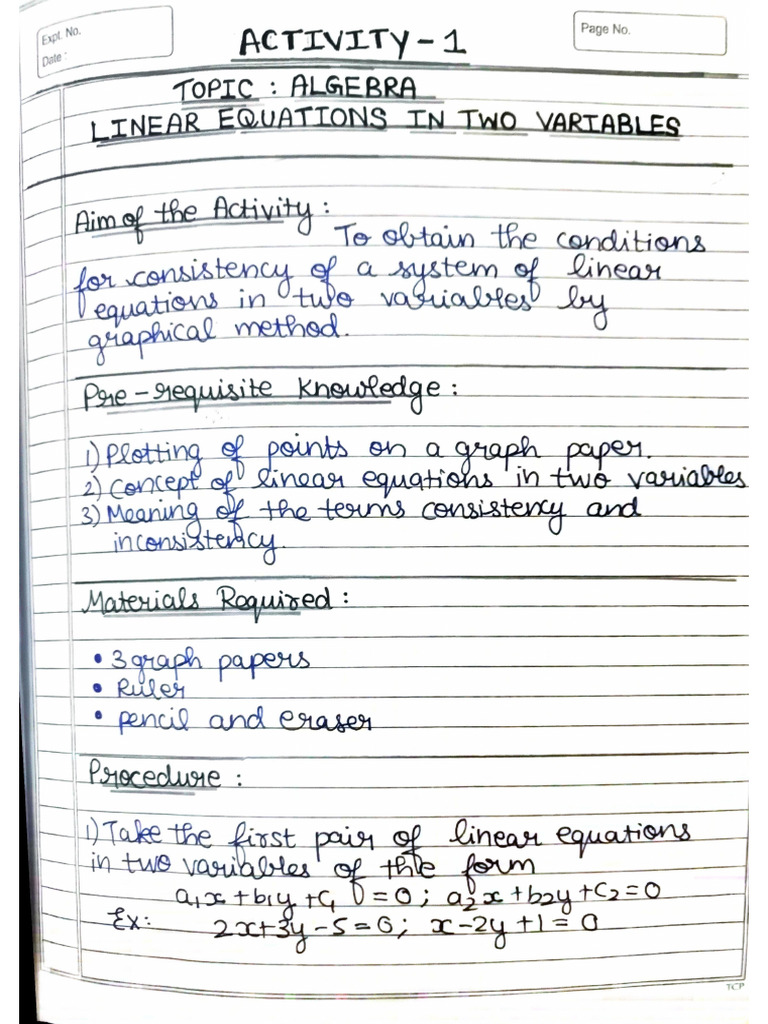 Expt. No.
Date :
Page No.
ACTIVITY - 1
TOPIC : ALGEBRA
LINEAR EQUATIONS IN TWO VARIABLES
Aim of the Activity :
To obtain the conditions
for consistency of a system of linear
equations in two variables by
graphical method.
Pre-requisite Knowledge :
1) Plotting of points on a graph paper.
2) Concept of linear equations in two variables
3) Meaning of the terms consistency and
inconsistency.
Materials Required :
• 3 graph papers
• Ruler
• pencil and eraser
Procedure :
1) Take the first pair of linear equations
in two variables of the form
a₁x + b₁y + c₁ = 0 ; a₂x + b₂y + c₂ = 0
Ex: 2x + 3y - 5 = 0 ; x - 2y + 1 = 0
TCP